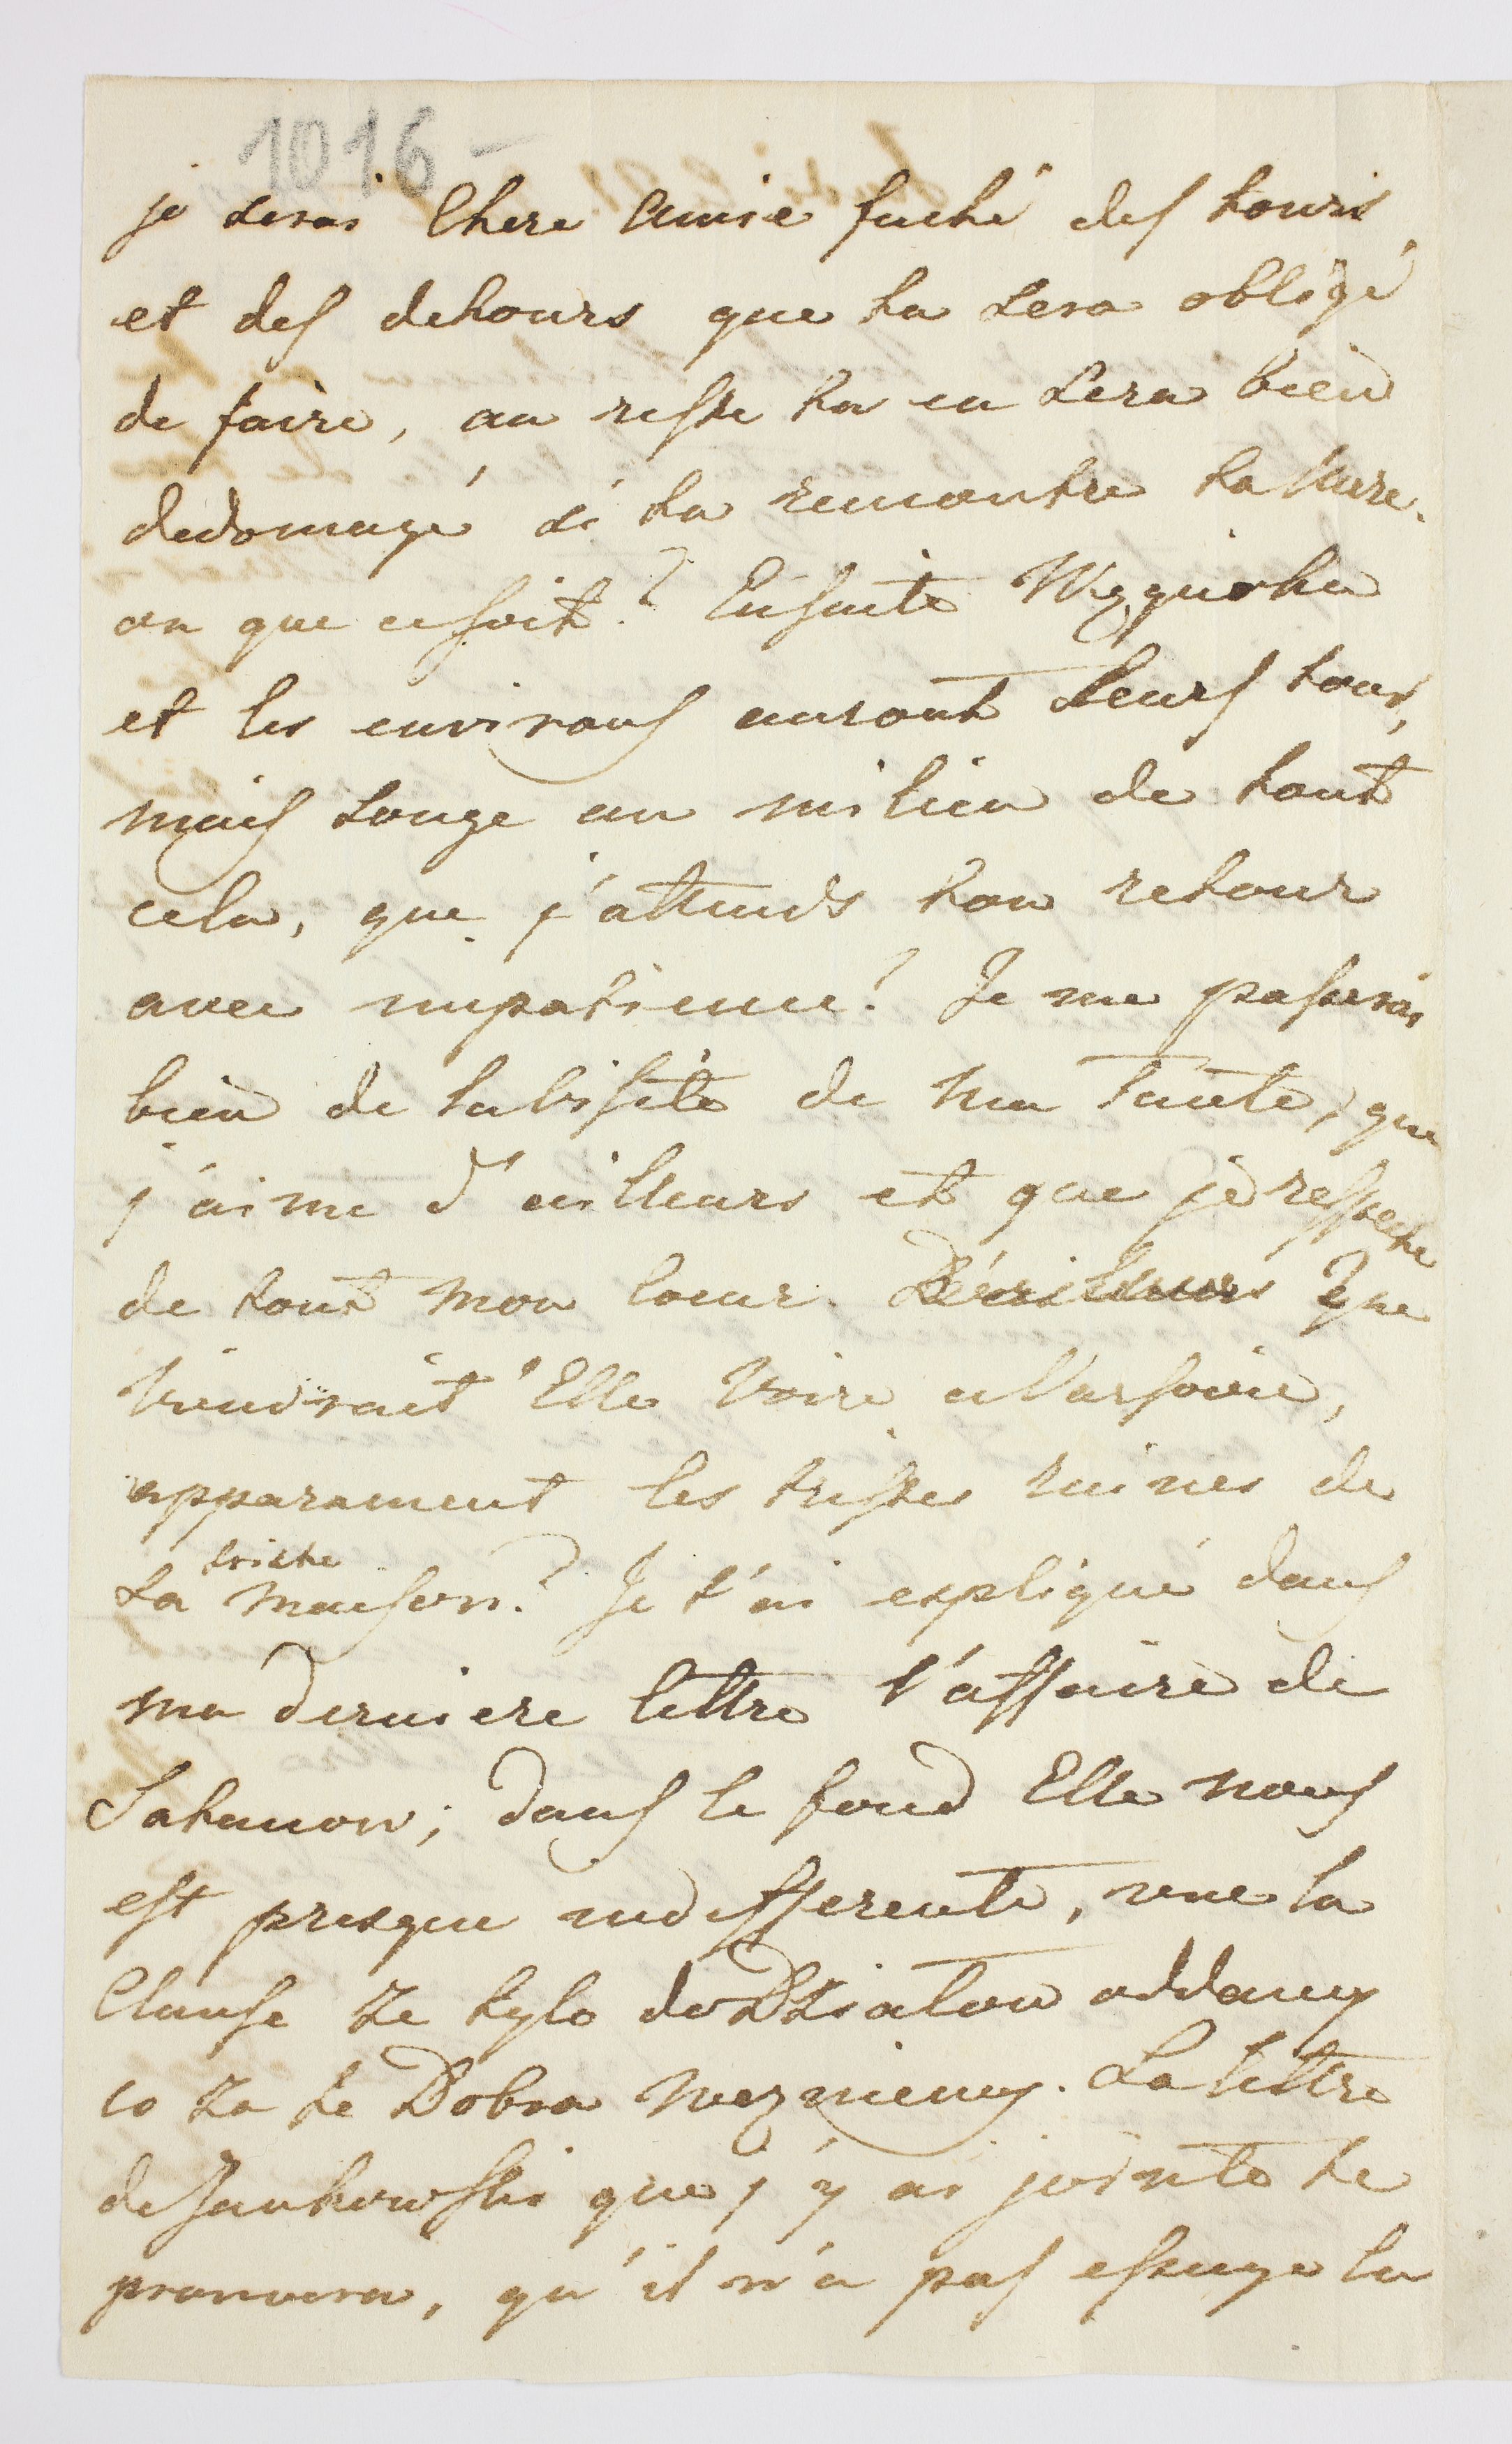 1016 -
je serai Chere Amie faché des tours
et des detours que tu sera obligé
de faire, au reste tu en sera bien
dedomagé si tu remontre
on que cesoit? Ensuite
et les environs auront leurs tour,
mais songe au milieu de tout
cela, que j'attends ton retour
avec impatience? Je me passerai
bien de la visite de ma Tante, que
j'aime d'ailleurs et que je respecte
de tout mon Coeur. Que
viendrait Elle voire a Varsovie,
apparament les tristes ruines de
sa triste maison? Je t'ai expliqué dans
ma derniere lettre l'affaire de
dans le fond Elle nous
est presque indifferente, vue la
Clause ze tylo do Dzialow oddamy
co za te Dobra wezniemy. La lettre
de Jankowski que j'y ai jointe te
prouvera, qu'il n'a pas essuye la